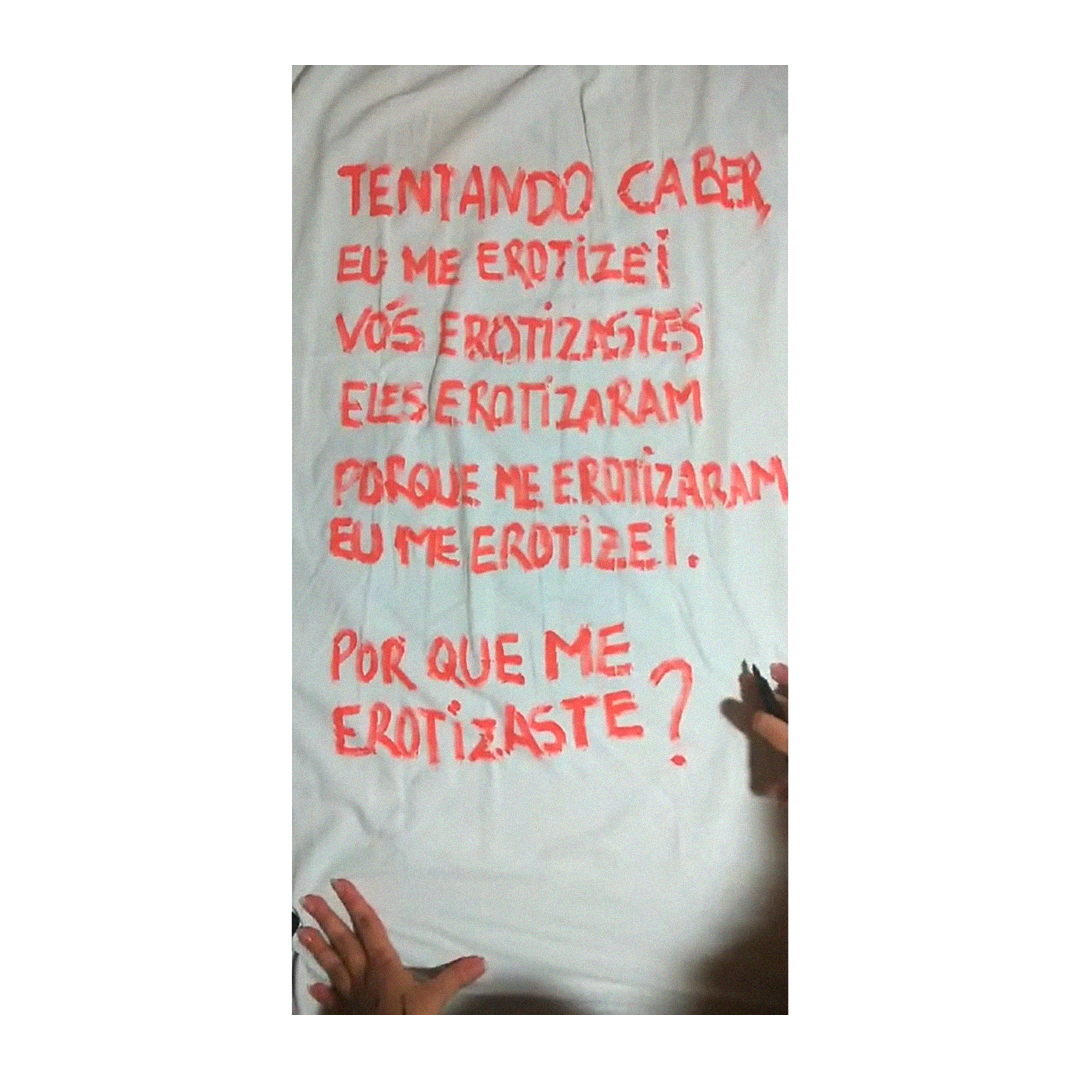 TENTANDO CABER,
EU ME EROTIZEI
VÓS EROTIZASTES
ELES EROTIZARAM
PORQUE ME EROTIZARAM
EU ME EROTIZEI.
POR QUE ME
EROTIZASTE?